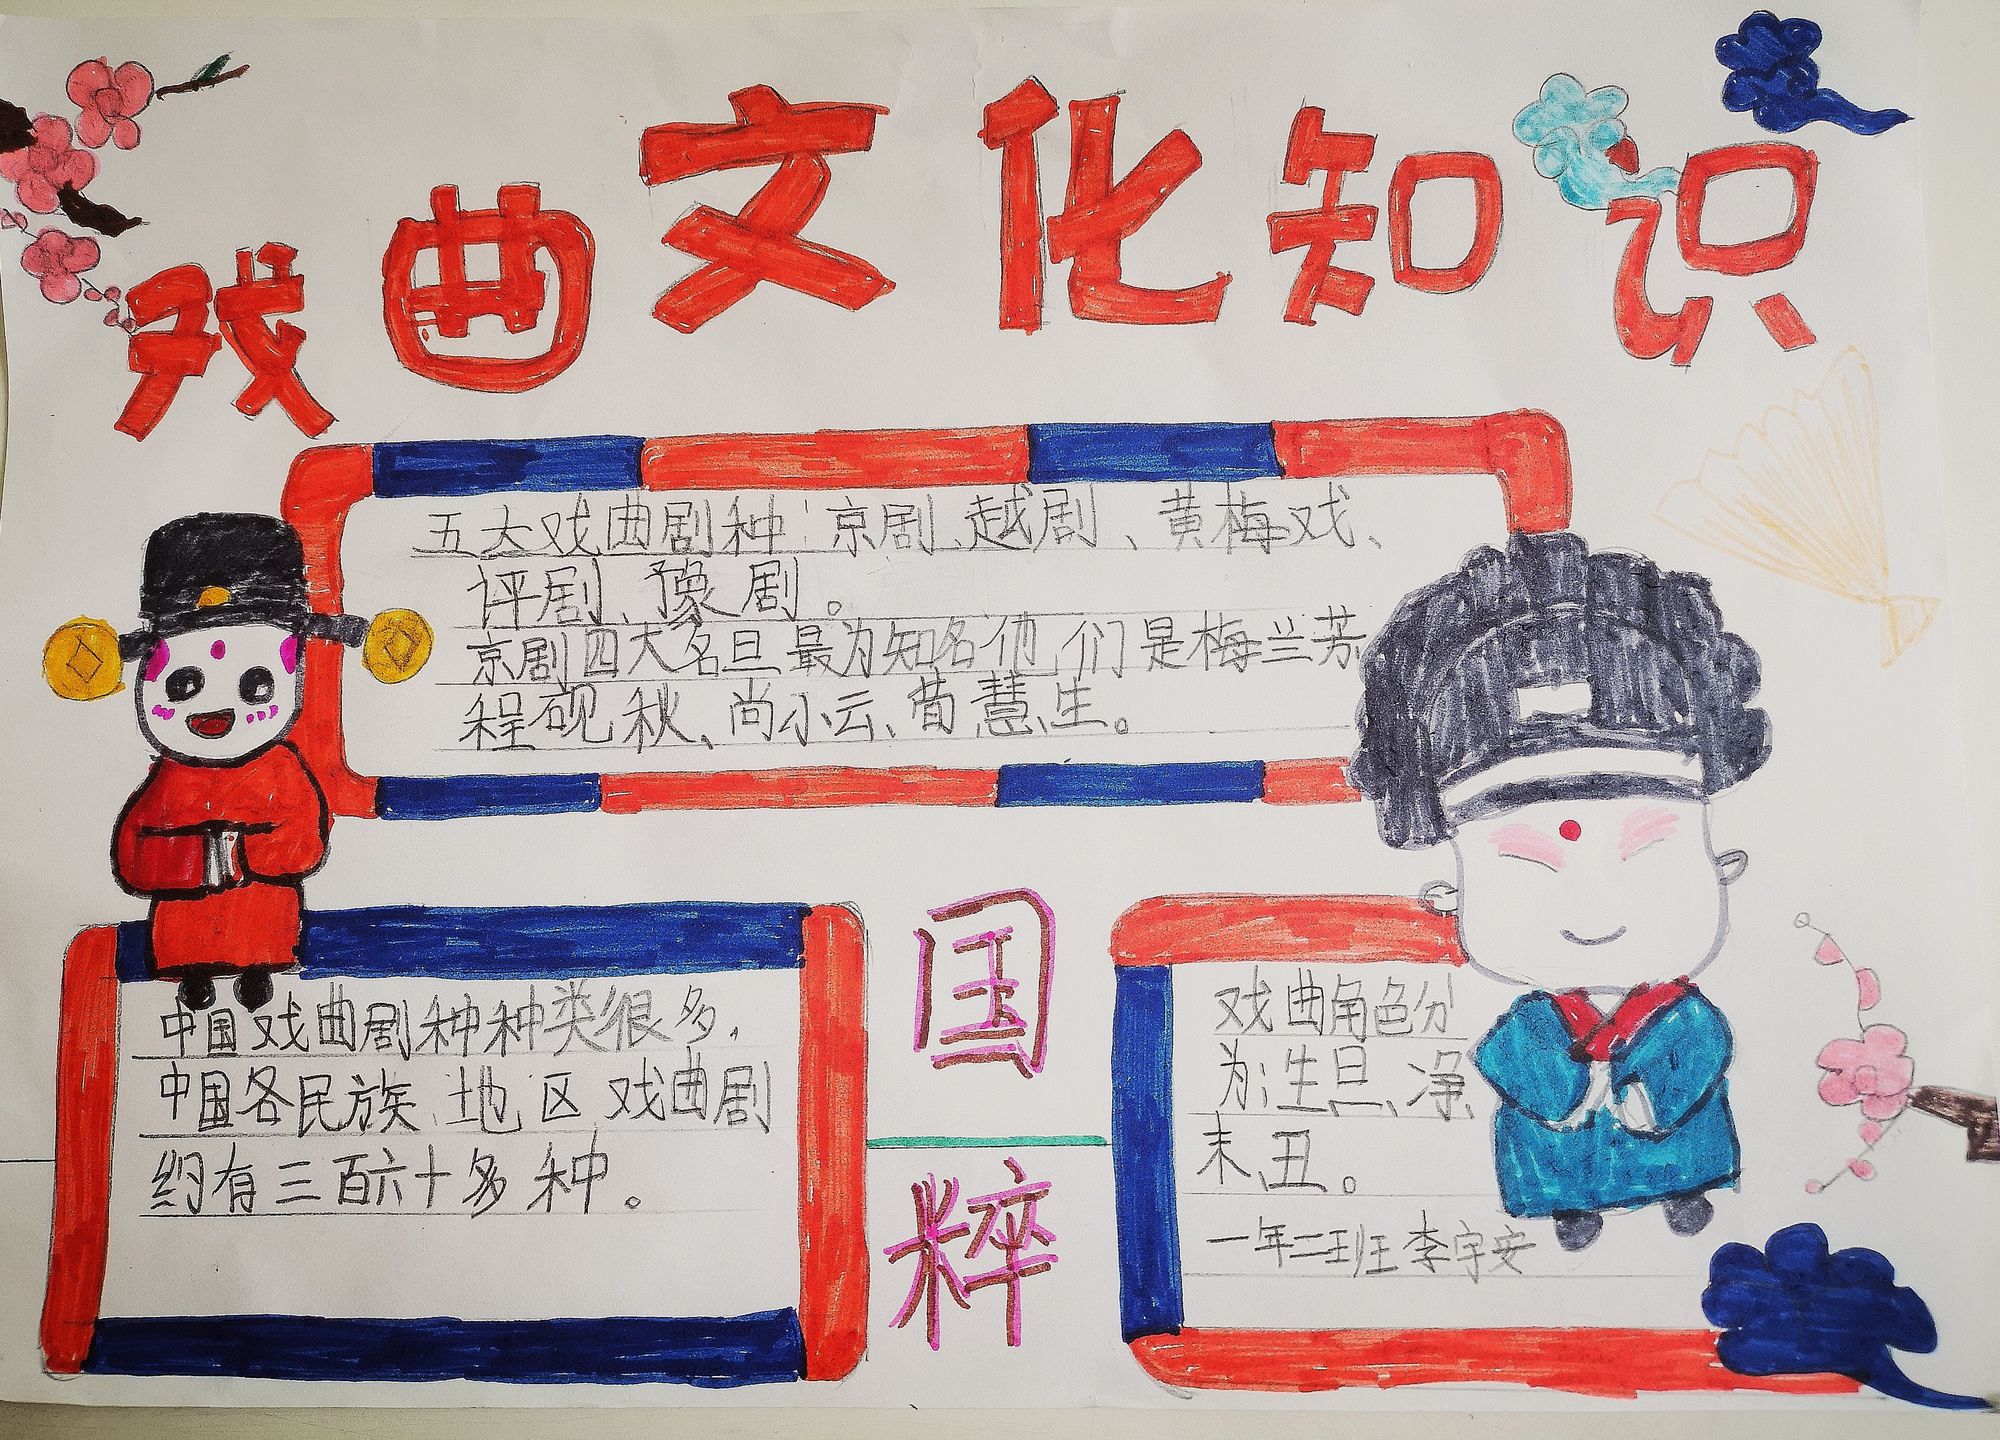 戏曲文化知识
五大戏曲剧种:京剧、越剧、黄梅戏、
评剧、豫剧。
京剧四大名旦最为知名他们是梅兰芳
程砚秋、尚小云、荀慧生。
中国戏曲剧种种类很多,
中国各民族、地区戏曲剧
约有三百六十多种。
国
粹
戏曲角色分
为:生旦、净、
末、丑。
一年二班王李宇安